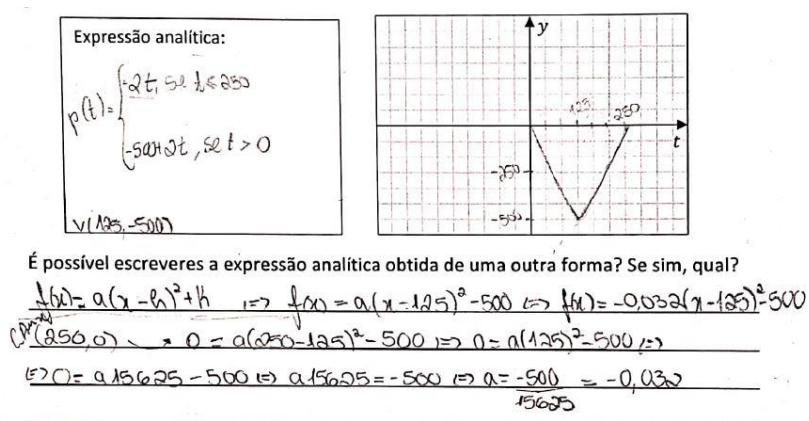 Expressão analítica:
p(t)= { -2t, se t ≤ 250
-500+2t, se t > 0
V(125,-500)
y
125
250
t
-250
-500
É possível escreveres a expressão analítica obtida de uma outra forma? Se sim, qual?
f(x)= a(x-h)²+k <=> f(x) = a(x-125)²-500 <=> f(x)= -0,032(x-125)²-500
(250,0) 0 = a(250-125)²-500 <=> 0= a(125)²-500 <=>
<=> 0= a15625-500 <=> a15625=-500 <=> a= -500/15625 = -0,032